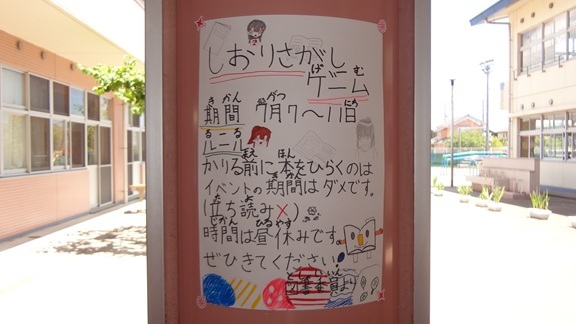 しおりさがし
ゲーム
期間 7月7〜11日
ルール
かりる前に本をひらくのは
イベントの期間はダメです。
(立ち読み×)
時間は昼休みです。
ぜひきてください。
図書委員より